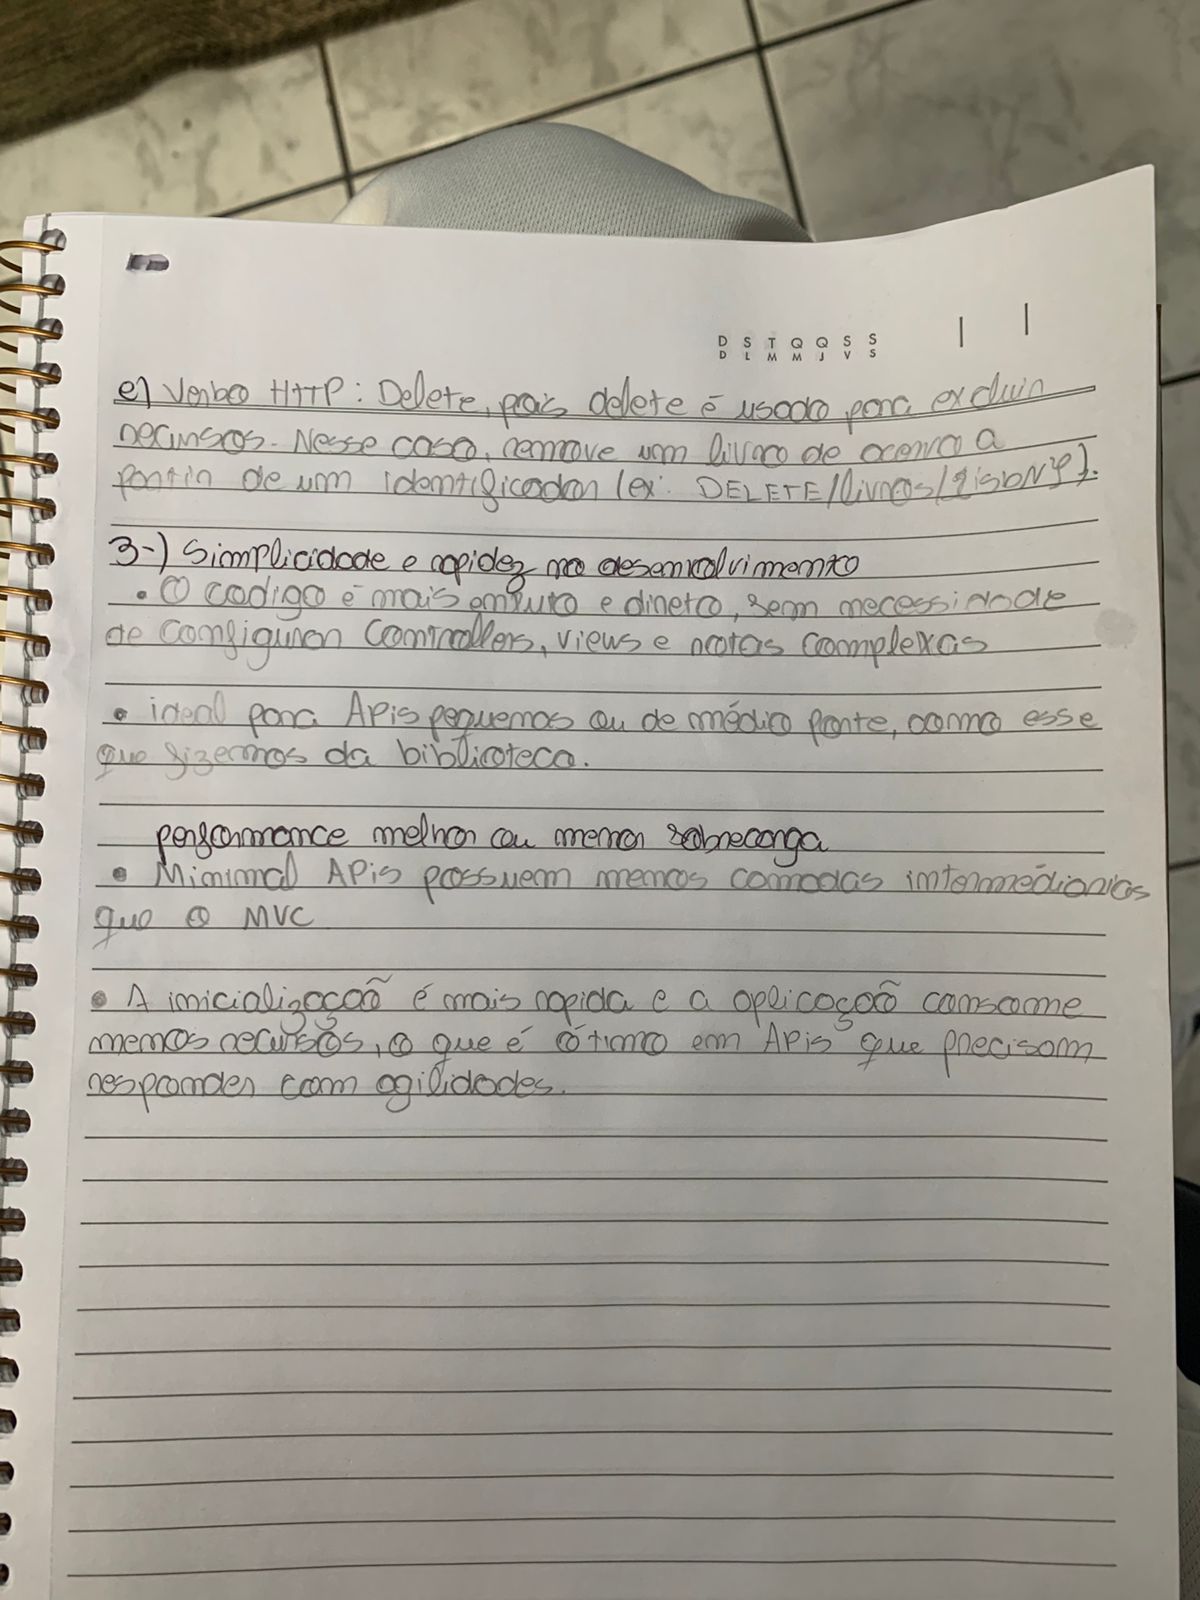 D S T Q Q S S
D L M M J V S
e) Verbo HTTP: Delete, pois delete é usado para excluir
recursos. Nesse caso, remove um livro de acervo a
partir de um identificador (ex: DELETE/livros/{isbn}).
3-) Simplicidade e rapidez no desenvolvimento
• O codigo é mais enxuto e direto, sem necessidade
de configurar Controllers, views e rotas complexas
• ideal para APis pequenas ou de médio porte, como esse
que fizermos da biblioteca.
performance melhor ou menor sobrecarga
• Minimal APis possuem menos camadas intermédiarias
que o MVC
• A inicialização é mais rapida e a aplicação consome
menos recursos, o que é ótimo em APis que precisam
responder com agilidades.